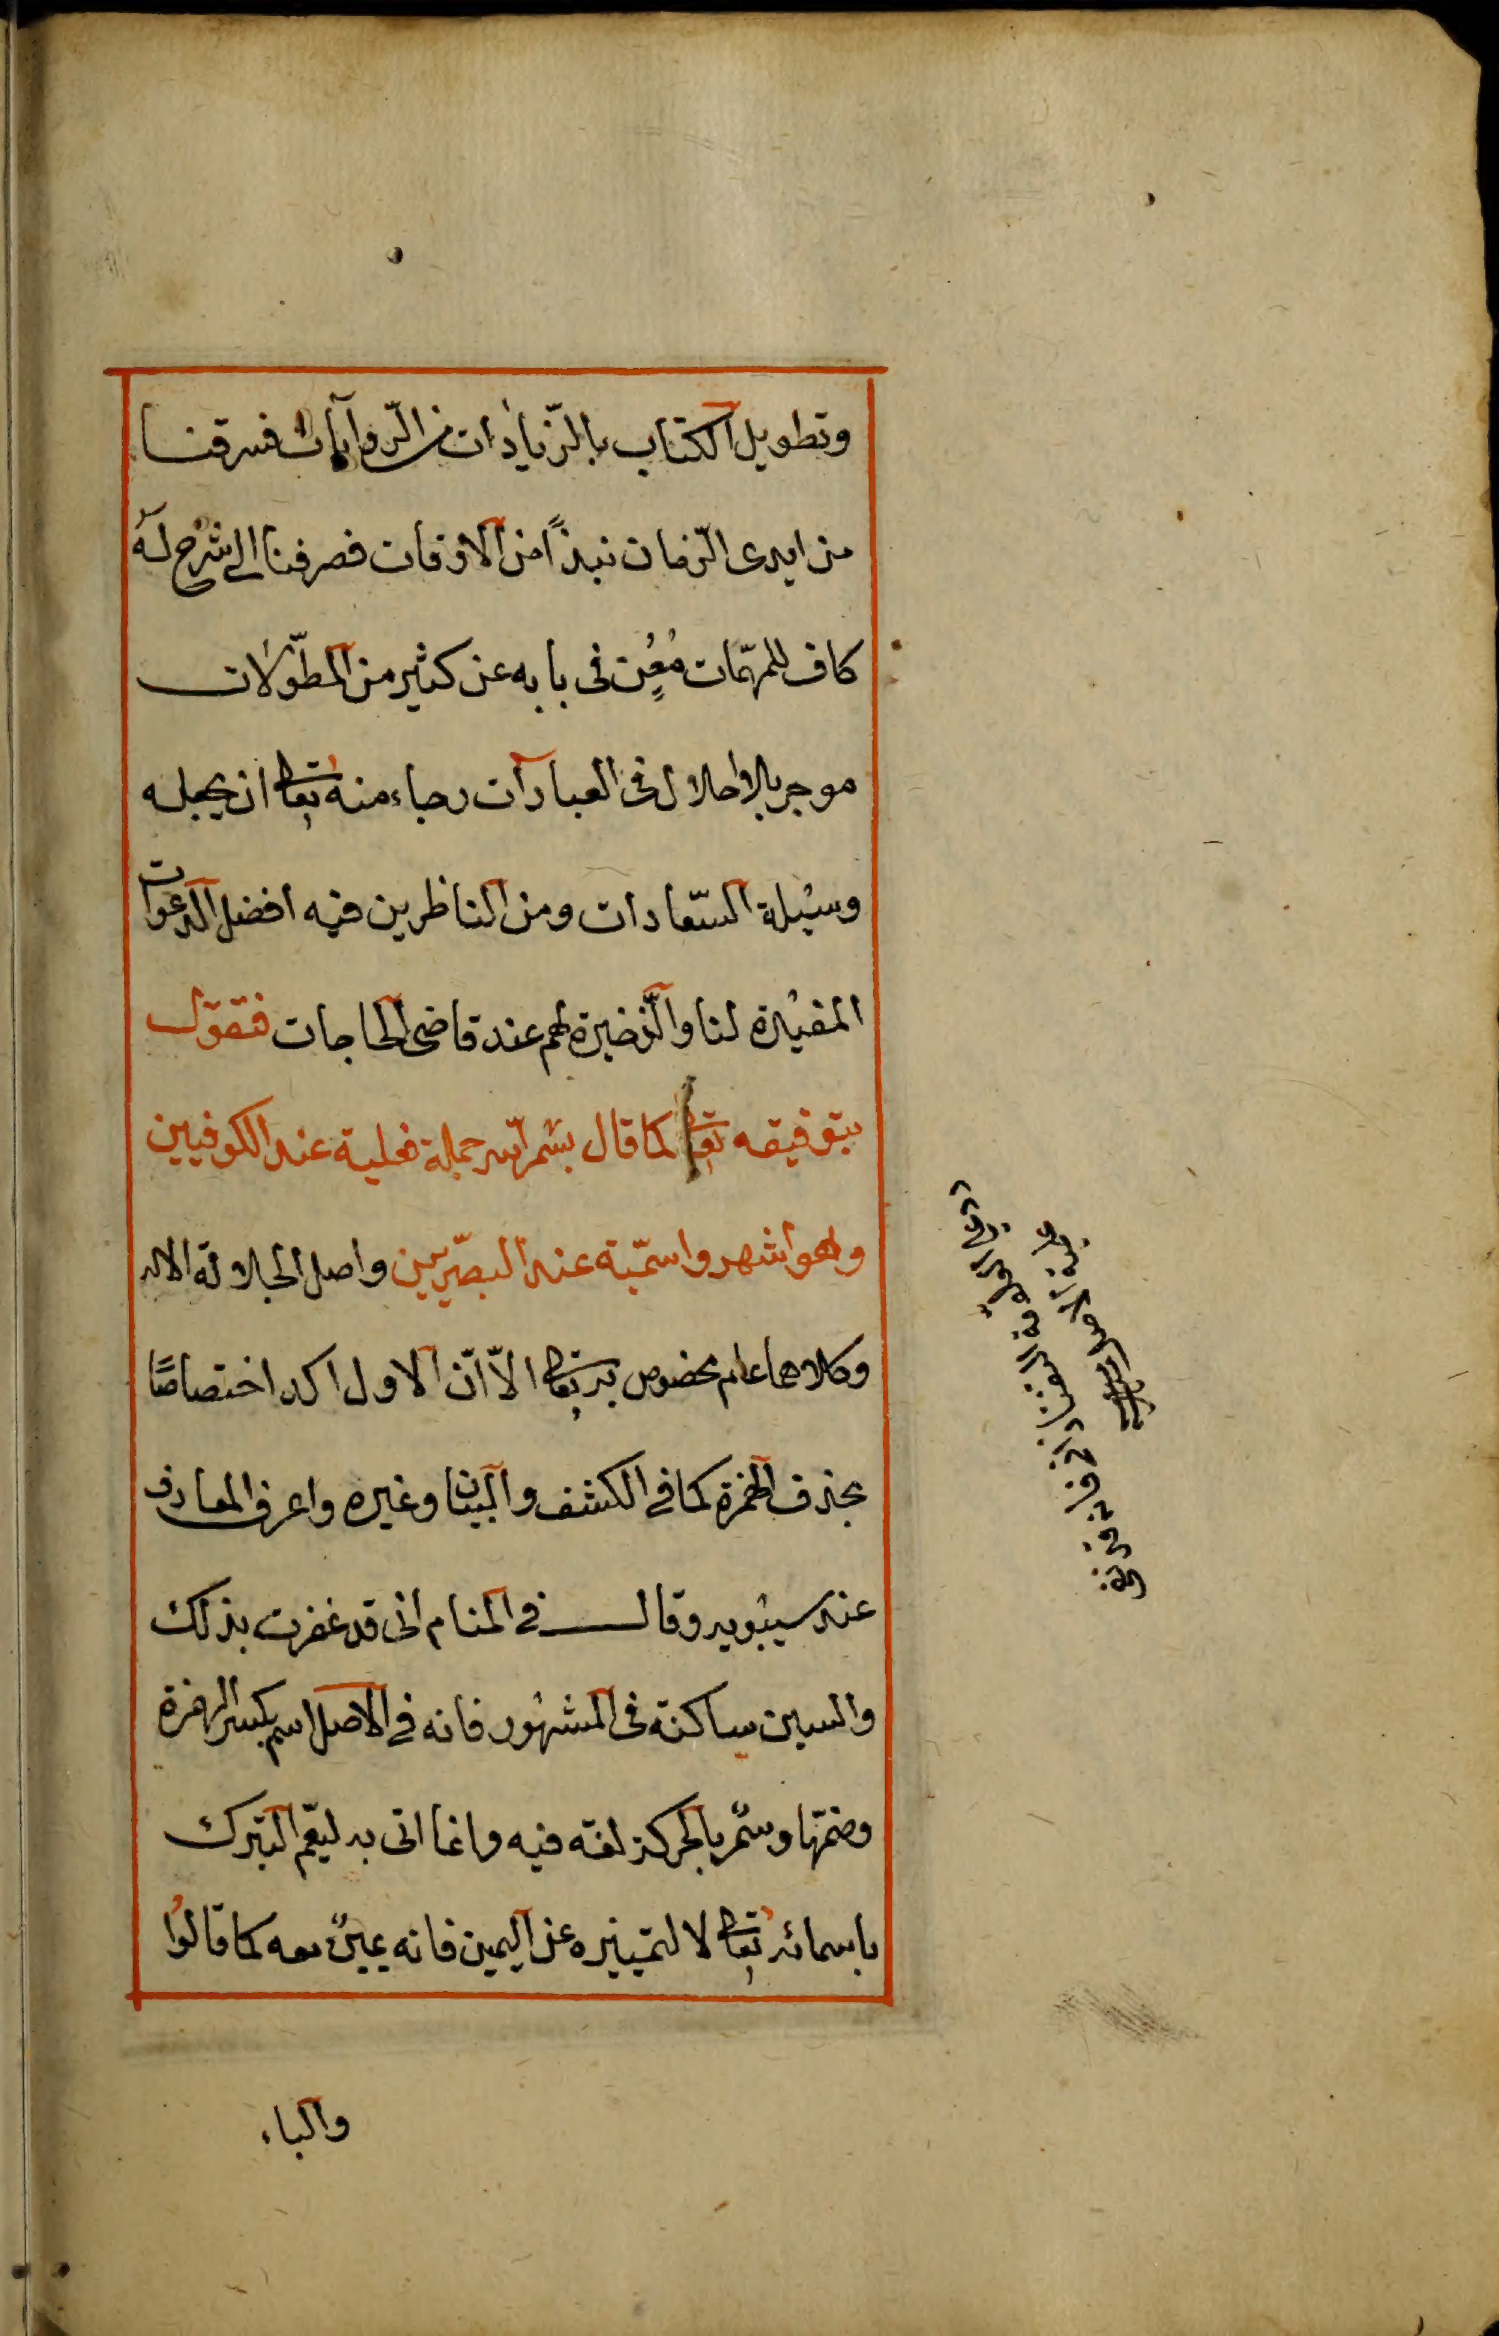 وتطويل الكتاب بالزّيادات من الرّوايات فسرقنا
من ايدى الزمان نبذاً من الاوقات فصرفنا الى شرح له
كاف للمهمّات مُغنٍ فى بابه عن كثير من المطوّلات
موجز بلا اخلال فى العبارات رجاء منه تعا ان يجعله
وسيلة السّعادات ومن الناظرين فيه افضل الدعوات
المفيدة لنا والذّخيرة لهم عند قاضى الحاجات فنقول
بتوفيقه تعا كما قال بسم الله جملة فعلية عند الكوفيين
وهو اشهر واسمّية عند البصّريين واصل الجلالة الاله
وكلاهما علم مخصوص به تعا الاّ انّ الاول اكد اختصاصًا
بحذف الهمزة كما فى الكشف والبيان وغيره واعرف المعارف
عند سيبويه وقال فى المنام انى قد غفرت بذلك
والسين ساكنة فى المشهور فانه فى الاصل اسم بكسر الهمزة
وضمّها وسم بالحركة لغة فيه وانما اتى به ليعّم التبرك
باسمائه تعا لا لتميّزه عن اليمين فانه يمين معه كما قالوا
والباء